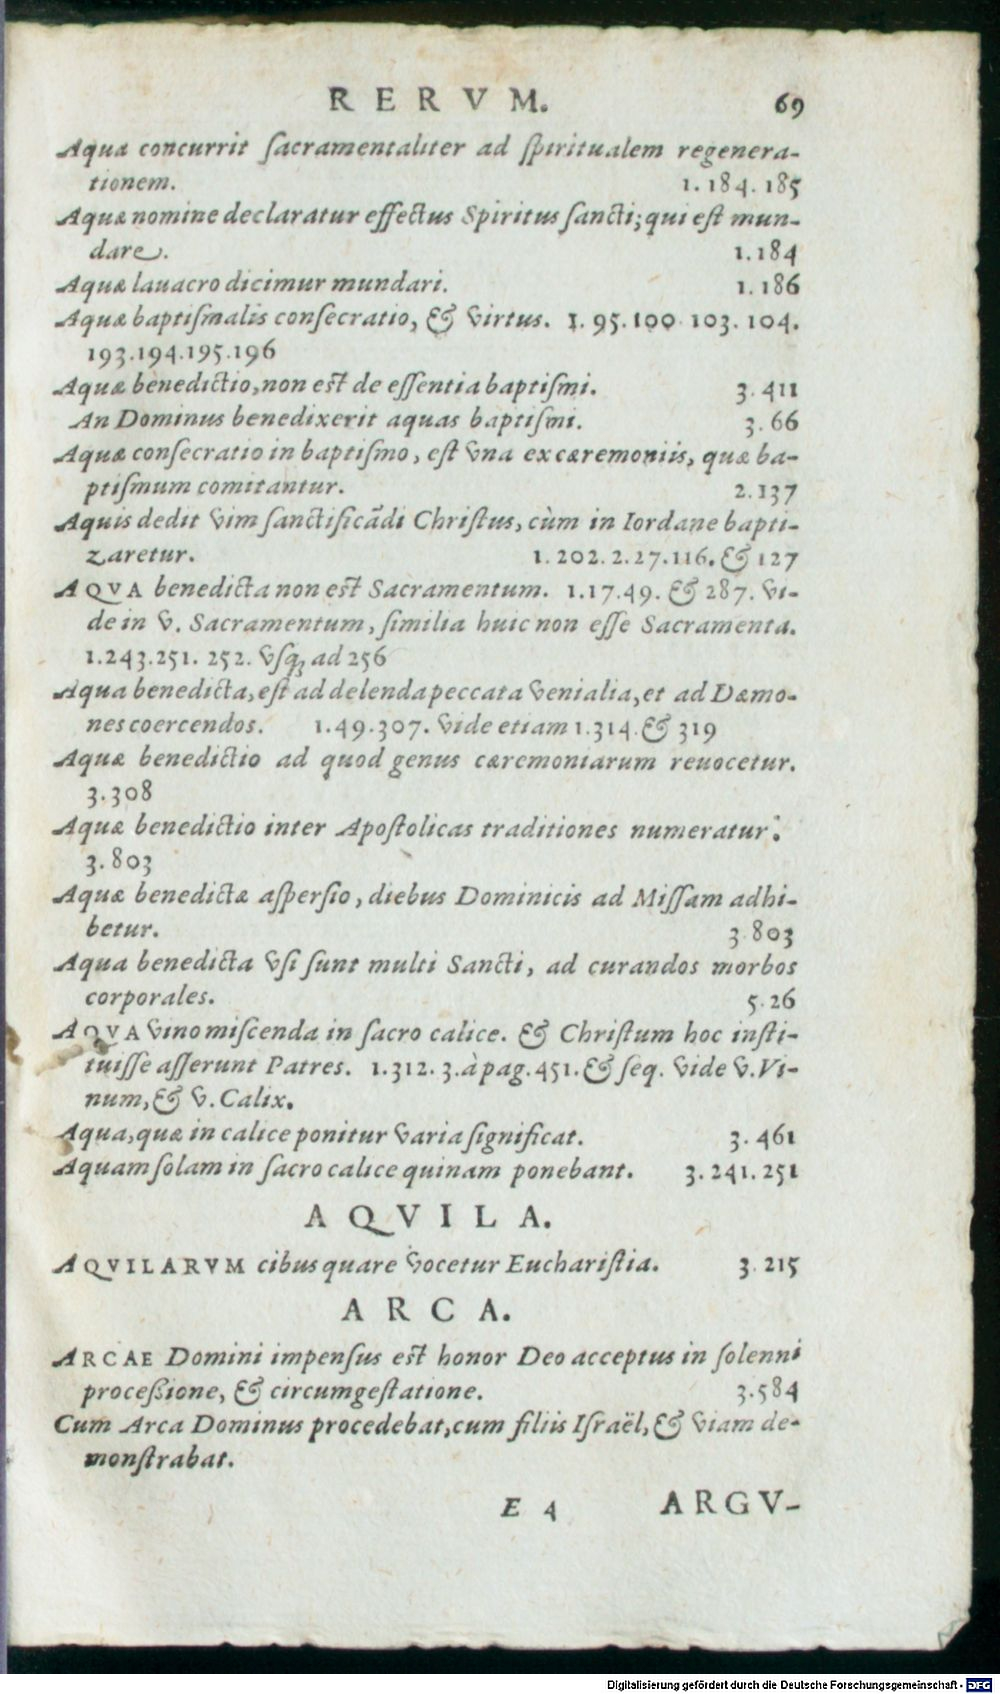 RERVM. 69
Aqua concurrit sacramentaliter ad spiritualem regenera-
tionem. 1. 184. 185
Aquæ nomine declaratur effectus Spiritus sancti; qui est mun-
dare. 1.184
Aquæ lauacro dicimur mundari. 1. 186
Aquæ baptismalis consecratio, & virtus. 1. 95. 100. 103. 104.
193.194.195.196
Aquæ benedictio, non est de essentia baptismi. 3. 411
An Dominus benedixerit aquas baptismi. 3. 66
Aquæ consecratio in baptismo, est vna ex cæremoniis, quæ ba-
ptismum comitantur. 2.137
Aquis dedit vim sanctificādi Christus, cùm in Iordane bapti-
zaretur. 1. 202. 2. 27. 116. & 127
AQVA benedicta non est Sacramentum. 1.17.49. & 287. vi-
de in v. Sacramentum, similia huic non esse Sacramenta.
1.243.251. 252. vsq; ad 256
Aqua benedicta, est ad delenda peccata venialia, et ad Dæmo-
nes coercendos. 1.49.307. vide etiam 1.314. & 319
Aquæ benedictio ad quod genus cæremoniarum reuocetur.
3.308
Aquæ benedictio inter Apostolicas traditiones numeratur.
3.803
Aquæ benedictæ aspersio, diebus Dominicis ad Missam adhi-
betur. 3.803
Aqua benedicta vsi sunt multi Sancti, ad curandos morbos
corporales. 5.26
AQVA vino miscenda in sacro calice. & Christum hoc insti-
tuisse asserunt Patres. 1.312. 3. à pag. 451. & seq. vide v. Vi-
num, & v. Calix.
Aqua, quæ in calice ponitur varia significat. 3. 461
Aquam solam in sacro calice quinam ponebant. 3. 241. 251
AQVILA.
AQVILARVM cibus quare vocetur Eucharistia. 3. 215
ARCA.
ARCAE Domini impensus est honor Deo acceptus in solenni
processione, & circumgestatione. 3.584
Cum Arca Dominus procedebat, cum filiis Israël, & viam de-
monstrabat.
E 4 ARGV-
Digitalisierung gefördert durch die Deutsche Forschungsgemeinschaft - DFG